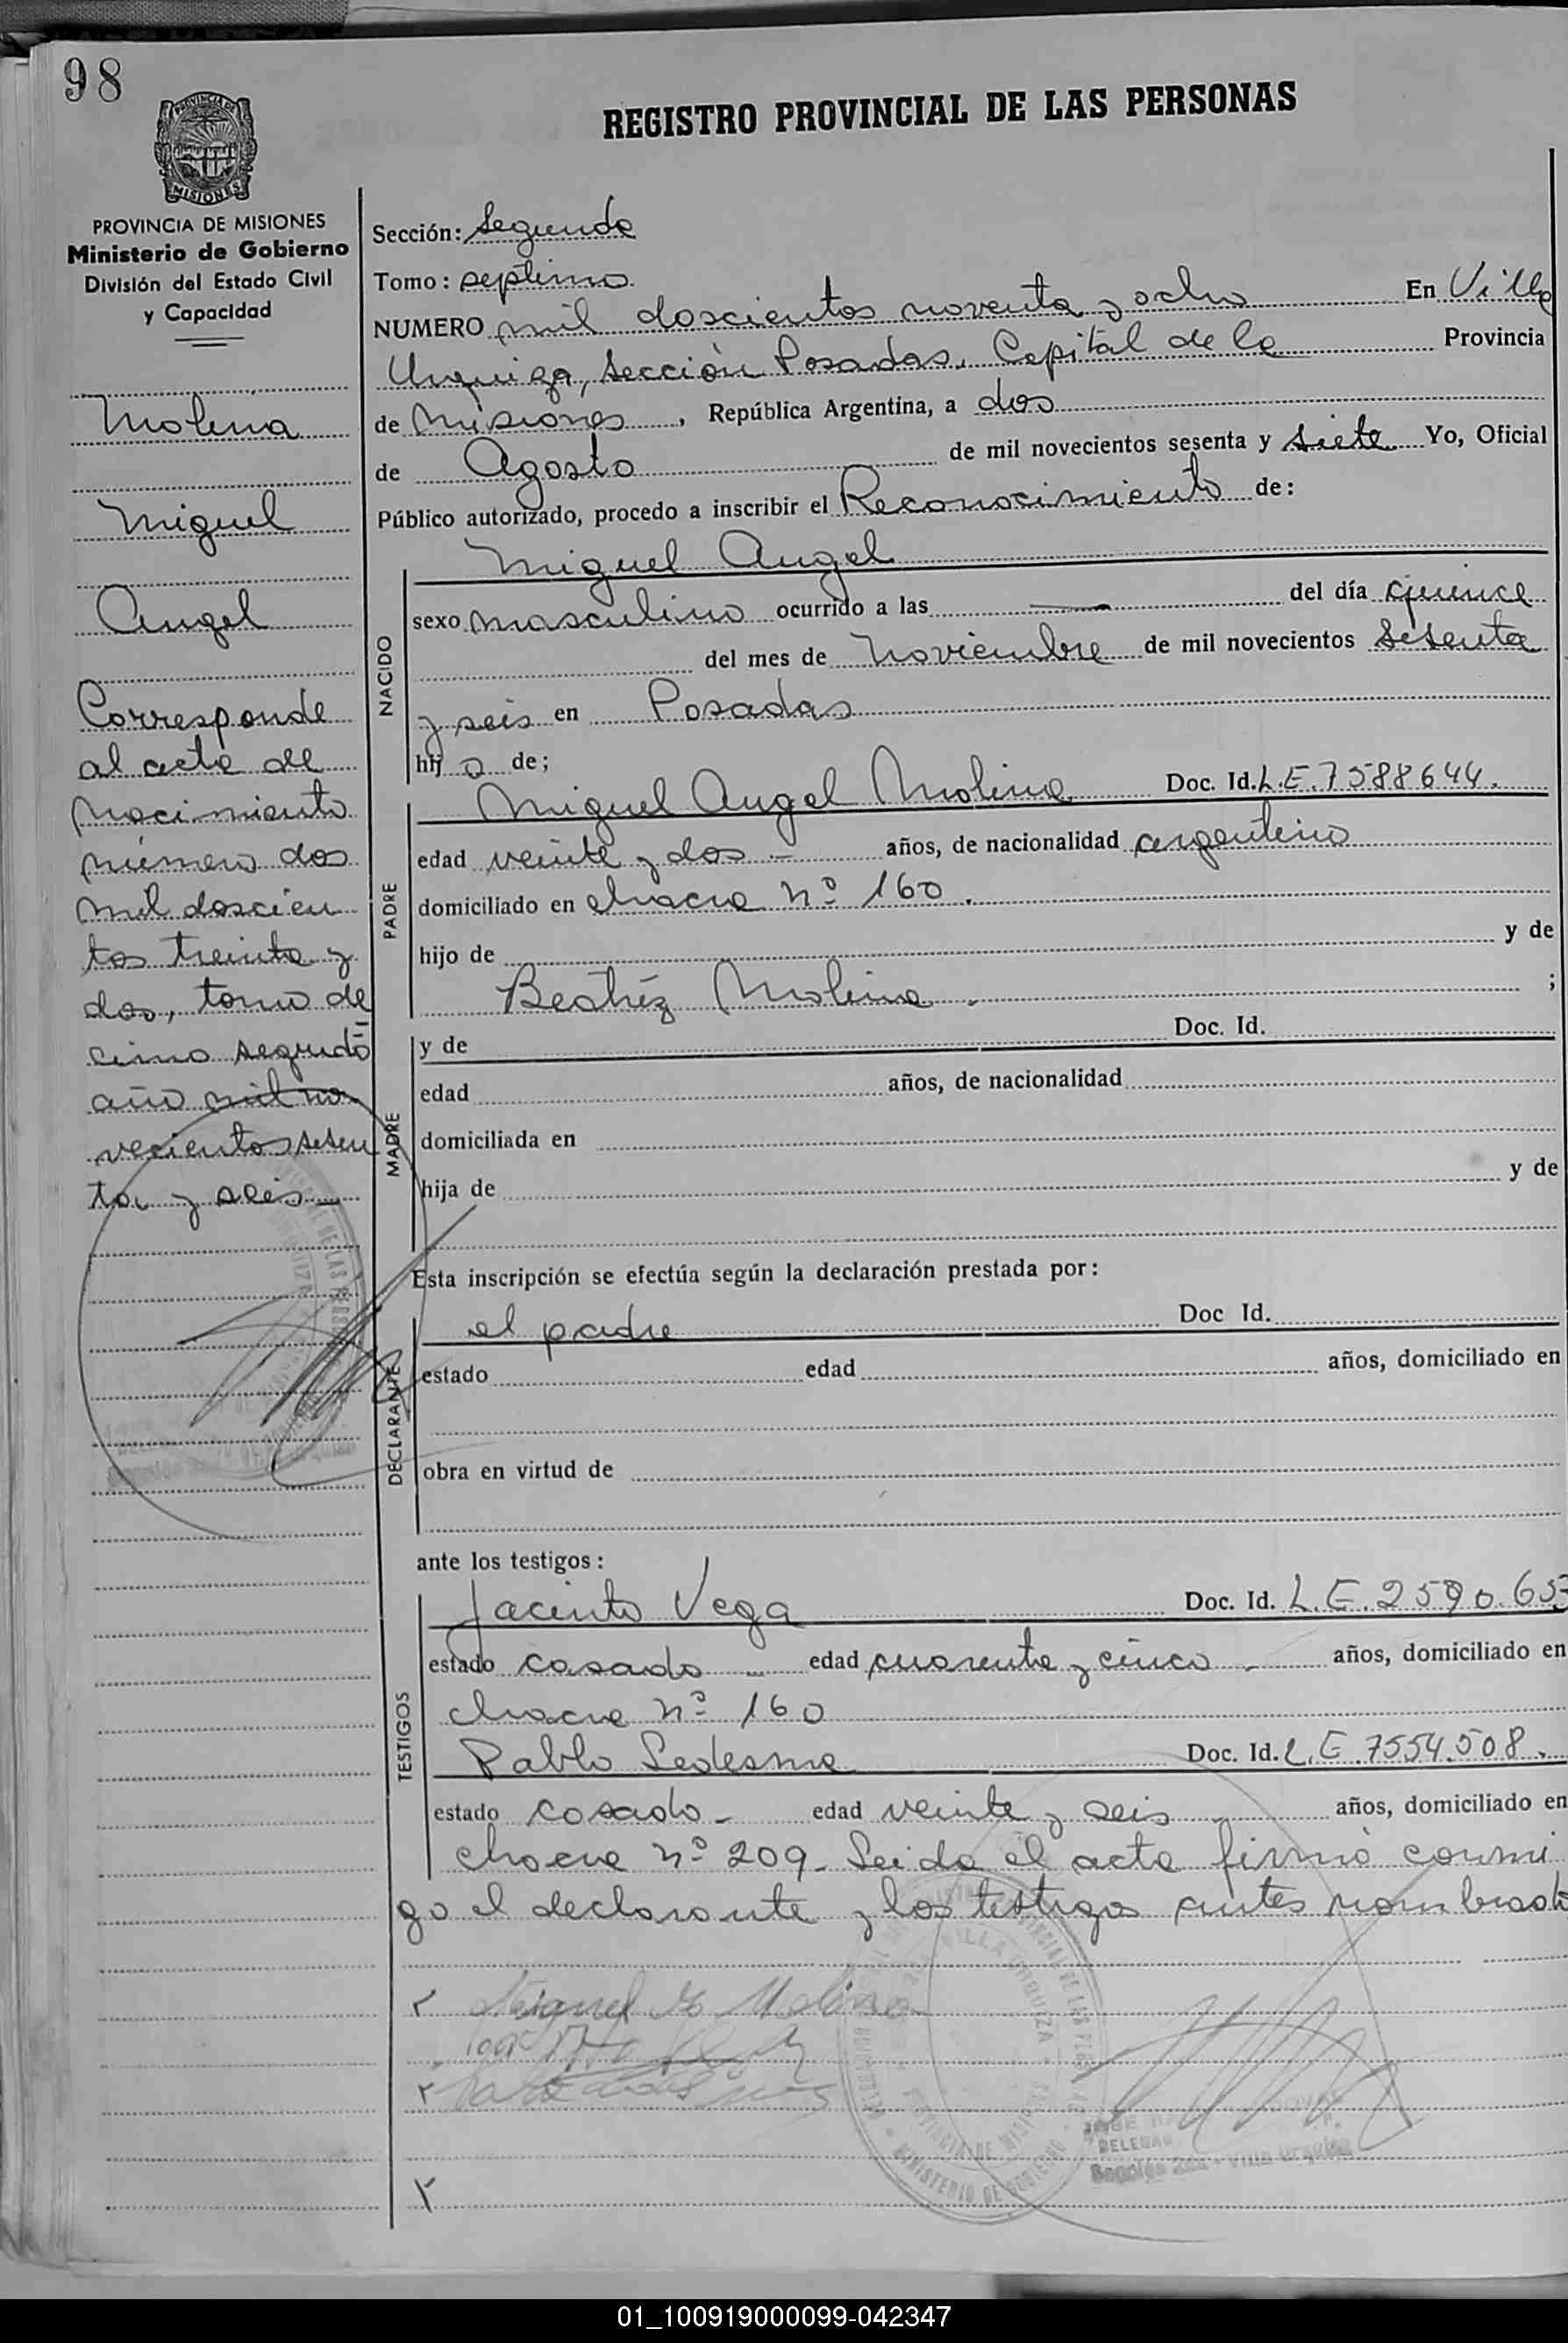 98
PROVINCIA DE
MISIONES
REGISTRO PROVINCIAL DE LAS PERSONAS
PROVINCIA DE MISIONES
Ministerio de Gobierno
División del Estado Civil
y Capacidad
Molina
Miguel
Angel
Corresponde
al acta de
nacimiento
número dos
mil doscien
tos treinta y
dos, tomo de
cimo segundo
año mil no
vecientos sesen
ta y seis
Sección: Segunda
Tomo: septimo
NUMERO mil doscientos noventa y ocho En Villa
Urquiza, Sección Posadas, Capital de la Provincia
de Misiones, República Argentina, a dos
de Agosto de mil novecientos sesenta y siete Yo, Oficial
Público autorizado, procedo a inscribir el Reconocimiento de:
NACIDO
Miguel Angel
sexo masculino ocurrido a las — del día quince
del mes de Noviembre de mil novecientos sesenta
y seis en Posadas
hij o de;
PADRE
Miguel Angel Molina Doc. Id. L.E. 7588644.
edad veinte y dos - años, de nacionalidad argentino
domiciliado en chacra nº 160.
hijo de y de
Beatriz Molina ;
MADRE
y de Doc. Id.
edad años, de nacionalidad
domiciliada en
hija de y de
Esta inscripción se efectúa según la declaración prestada por:
DECLARANTE
el padre Doc Id.
estado edad años, domiciliado en
obra en virtud de
ante los testigos:
TESTIGOS
Jacinto Vega Doc. Id. L.E. 2590.653
estado casado edad cuarenta y cinco años, domiciliado en
chacra nº 160
Pablo Ledesma Doc. Id. L.E. 7554.508.
estado casado - edad veinte y seis años, domiciliado en
chacra nº 209 - Leida el acta firmó conmi
go el declarante y los testigos antes nombrados
Miguel A Molina
VILLA URQUIZA
PROVINCIA DE MISIONES
MINISTERIO DE GOBIERNO
01_100919000099-042347